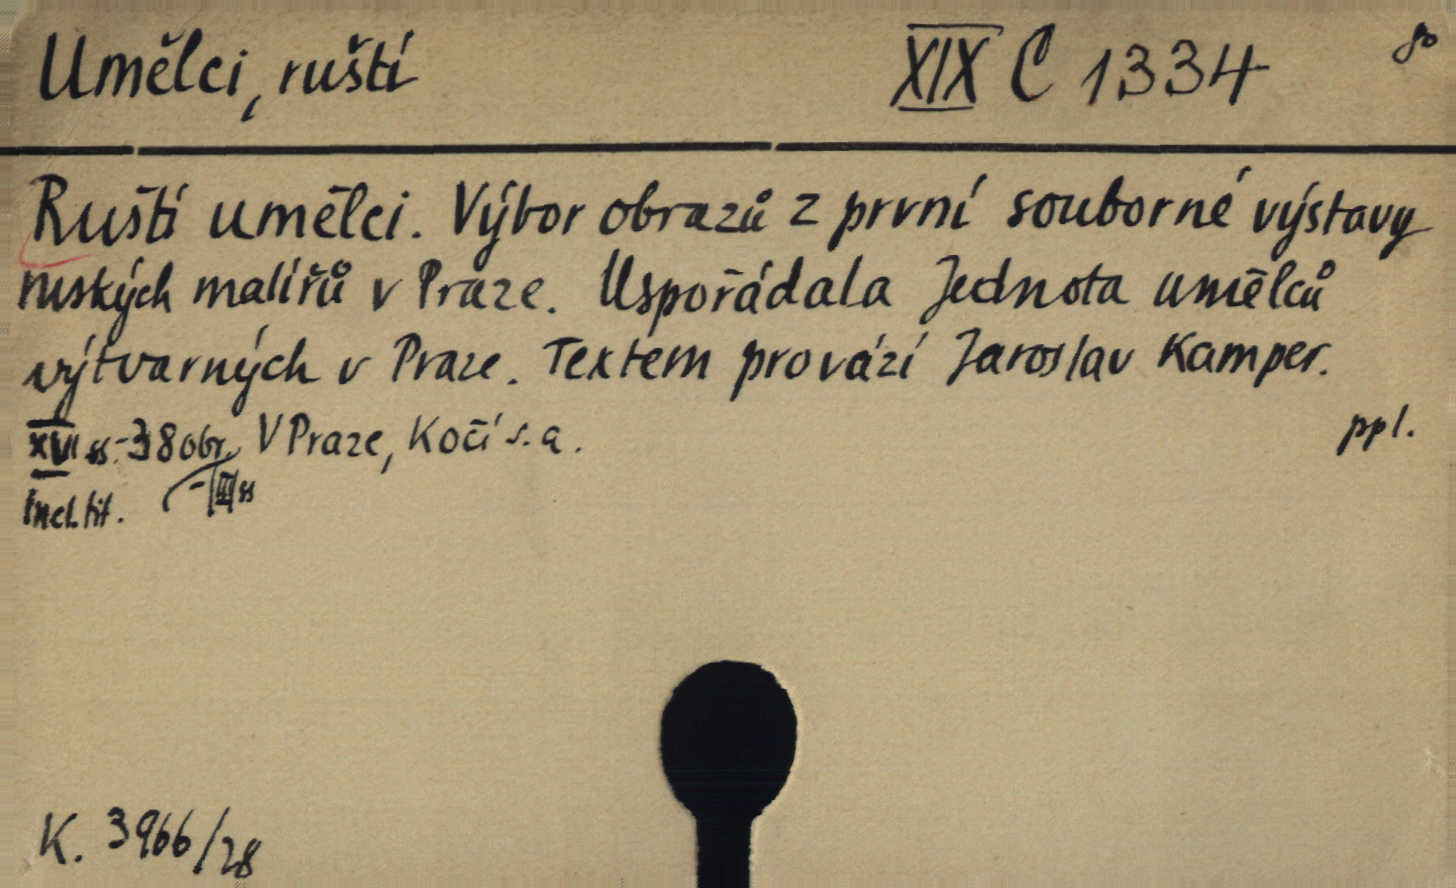 Umělci, ruští XIX C 1334 8°
Ruští umělci. Výbor obrazů z první souborné výstavy
ruských malířů v Praze. Uspořádala Jednota umělců
výtvarných v Praze. Textem provází Jaroslav Kamper.
XVI ss.-38 obr. V Praze, Kočí s.a. ppl.
-III ss
Incl. tit.
K. 3966/28